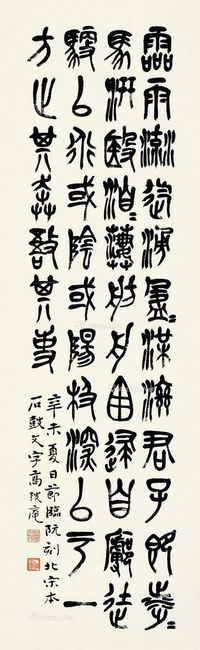 霝雨流迄滂=盈渫濟君子即涉=
馬汧殹洎=淒=舫舟囪逮自廓徒
馭以衍或陰或陽极深以于一
方止其奔敔其事
辛未夏日節臨阮刻北宋本
石鼓文字高庵